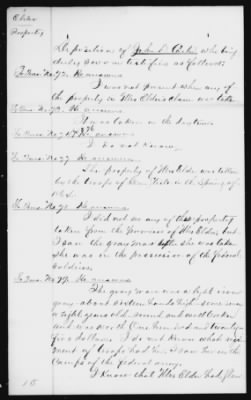 Elder
Property
Deposition of John D. who being
duly sworn testifies as follows:
To Ques. No. 72. He answers
I was not present when any of
the property in this Elder's claim was taken
To Ques. No. He answers
It was taken in the
To Ques. No. 76 He answers
I do not know,
To Ques. No. 77. He answers
The property of Mrs Elder was taken
by the troops of Genl. in the Spring of
To Ques. No. 78. He answers
I did not see any of the property
taken from the premises of Mrs Elder, but
I saw the gray mare after she was taken
she was in the possession of the federal
soldiers.
To Ques. No. 79. He answers
The gray mare was a light iron
gray about sixteen hands high some six or
years old sound and well broken
and was worth One hundred and twenty
five dollars. I do not know which regi-
ment of troops had her. I saw her in the
Camps of the federal army.
I know that Mrs Elder had